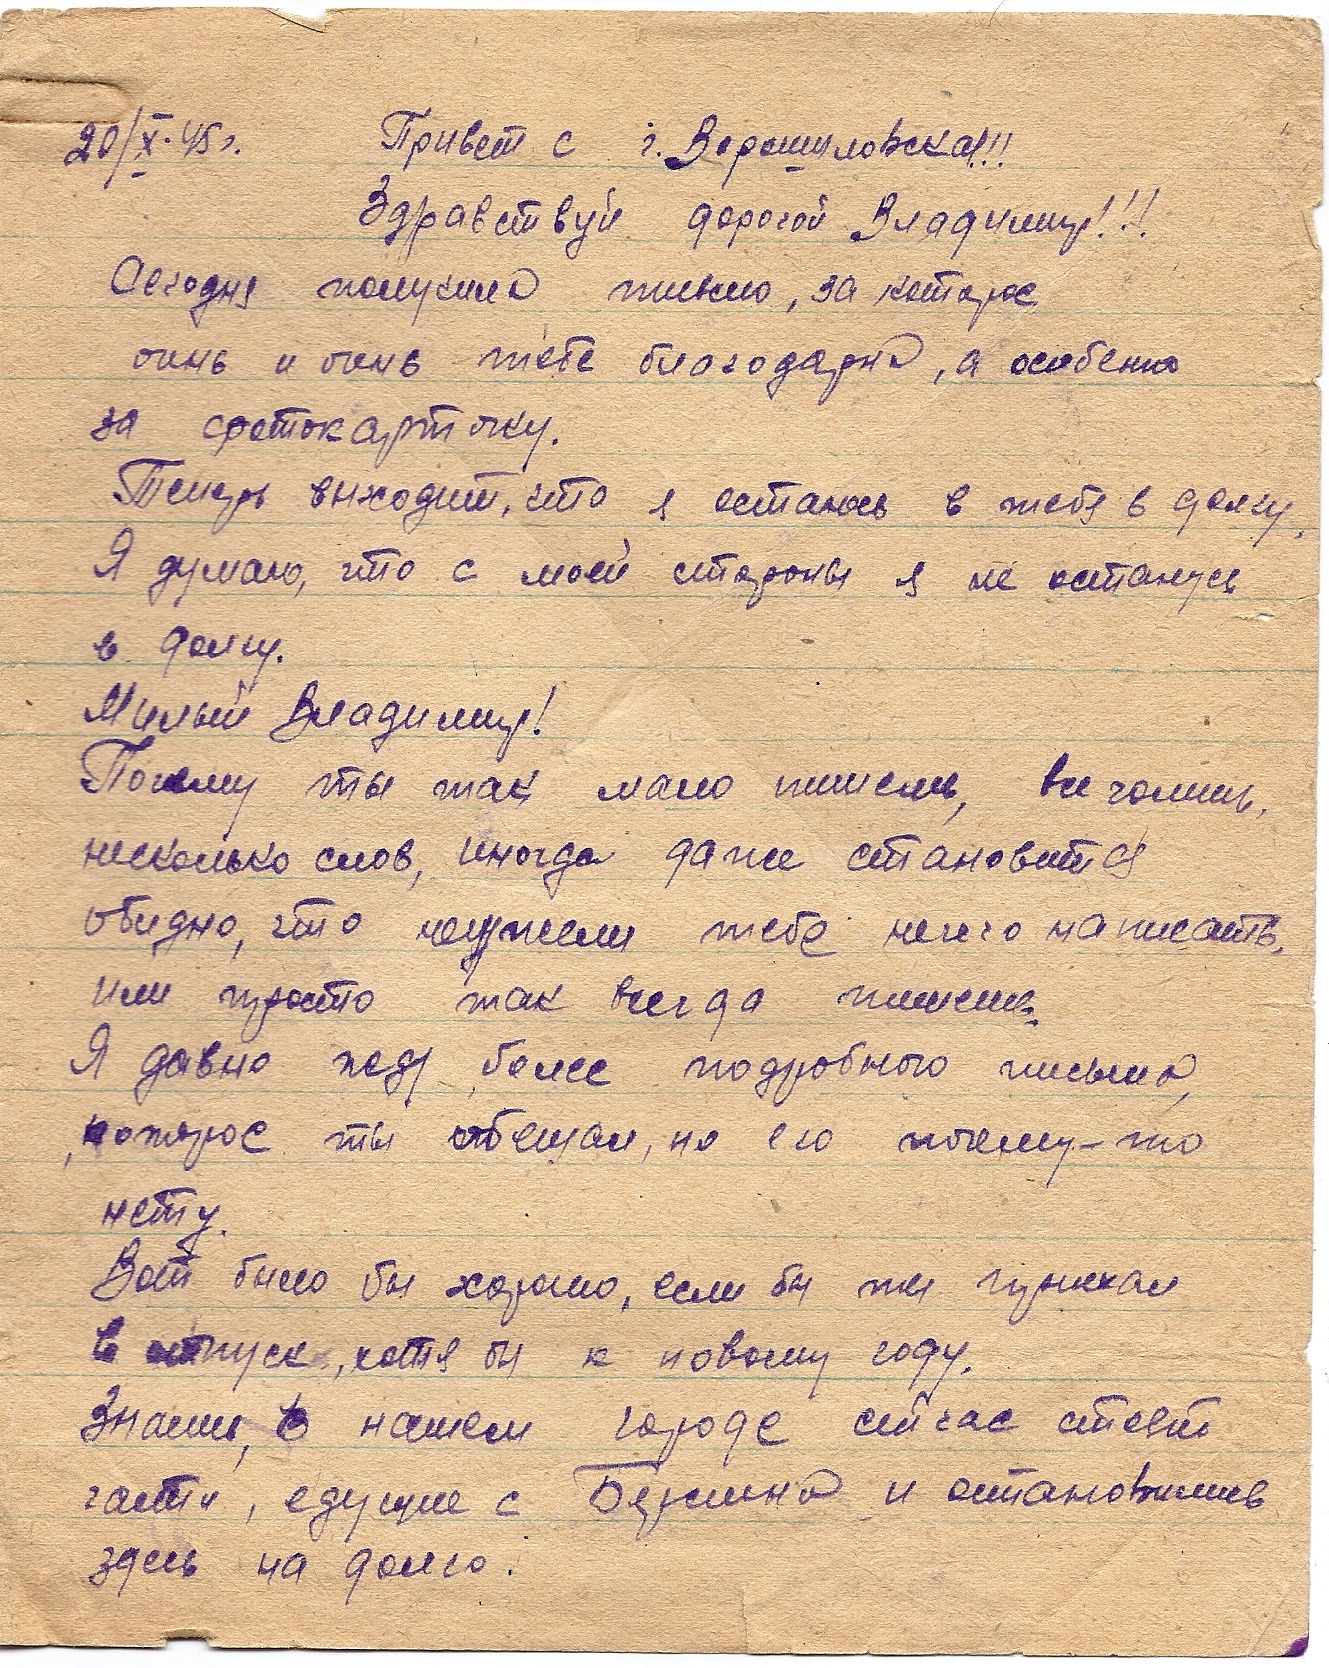 20/X.45 г. Привет с г. Ворошиловска!!!
Здравствуй дорогой Владимир!!!
Сегодня получила письмо, за которое
очень и очень тебе благодарна, а особенно
за фотокарточку.
Теперь выходит, что я остаюсь в тебя в долгу.
Я думаю, что с моей стороны я не останусь
в долгу.
Милый Владимир!
Почему ты так мало пишешь,
несколько слов, иногда даже становится
обидно, что неужели тебе нечего написать,
или просто так всегда пишешь.
Я давно жду более подробного письма,
которое ты обещал, но его почему-то
нету.
Вот было бы хорошо, если бы ты приехал
в отпуск, хотя бы к новому году.
Знаешь, в нашем городе сейчас стоят
части, едущие с Берлина и остановились
здесь на долго.